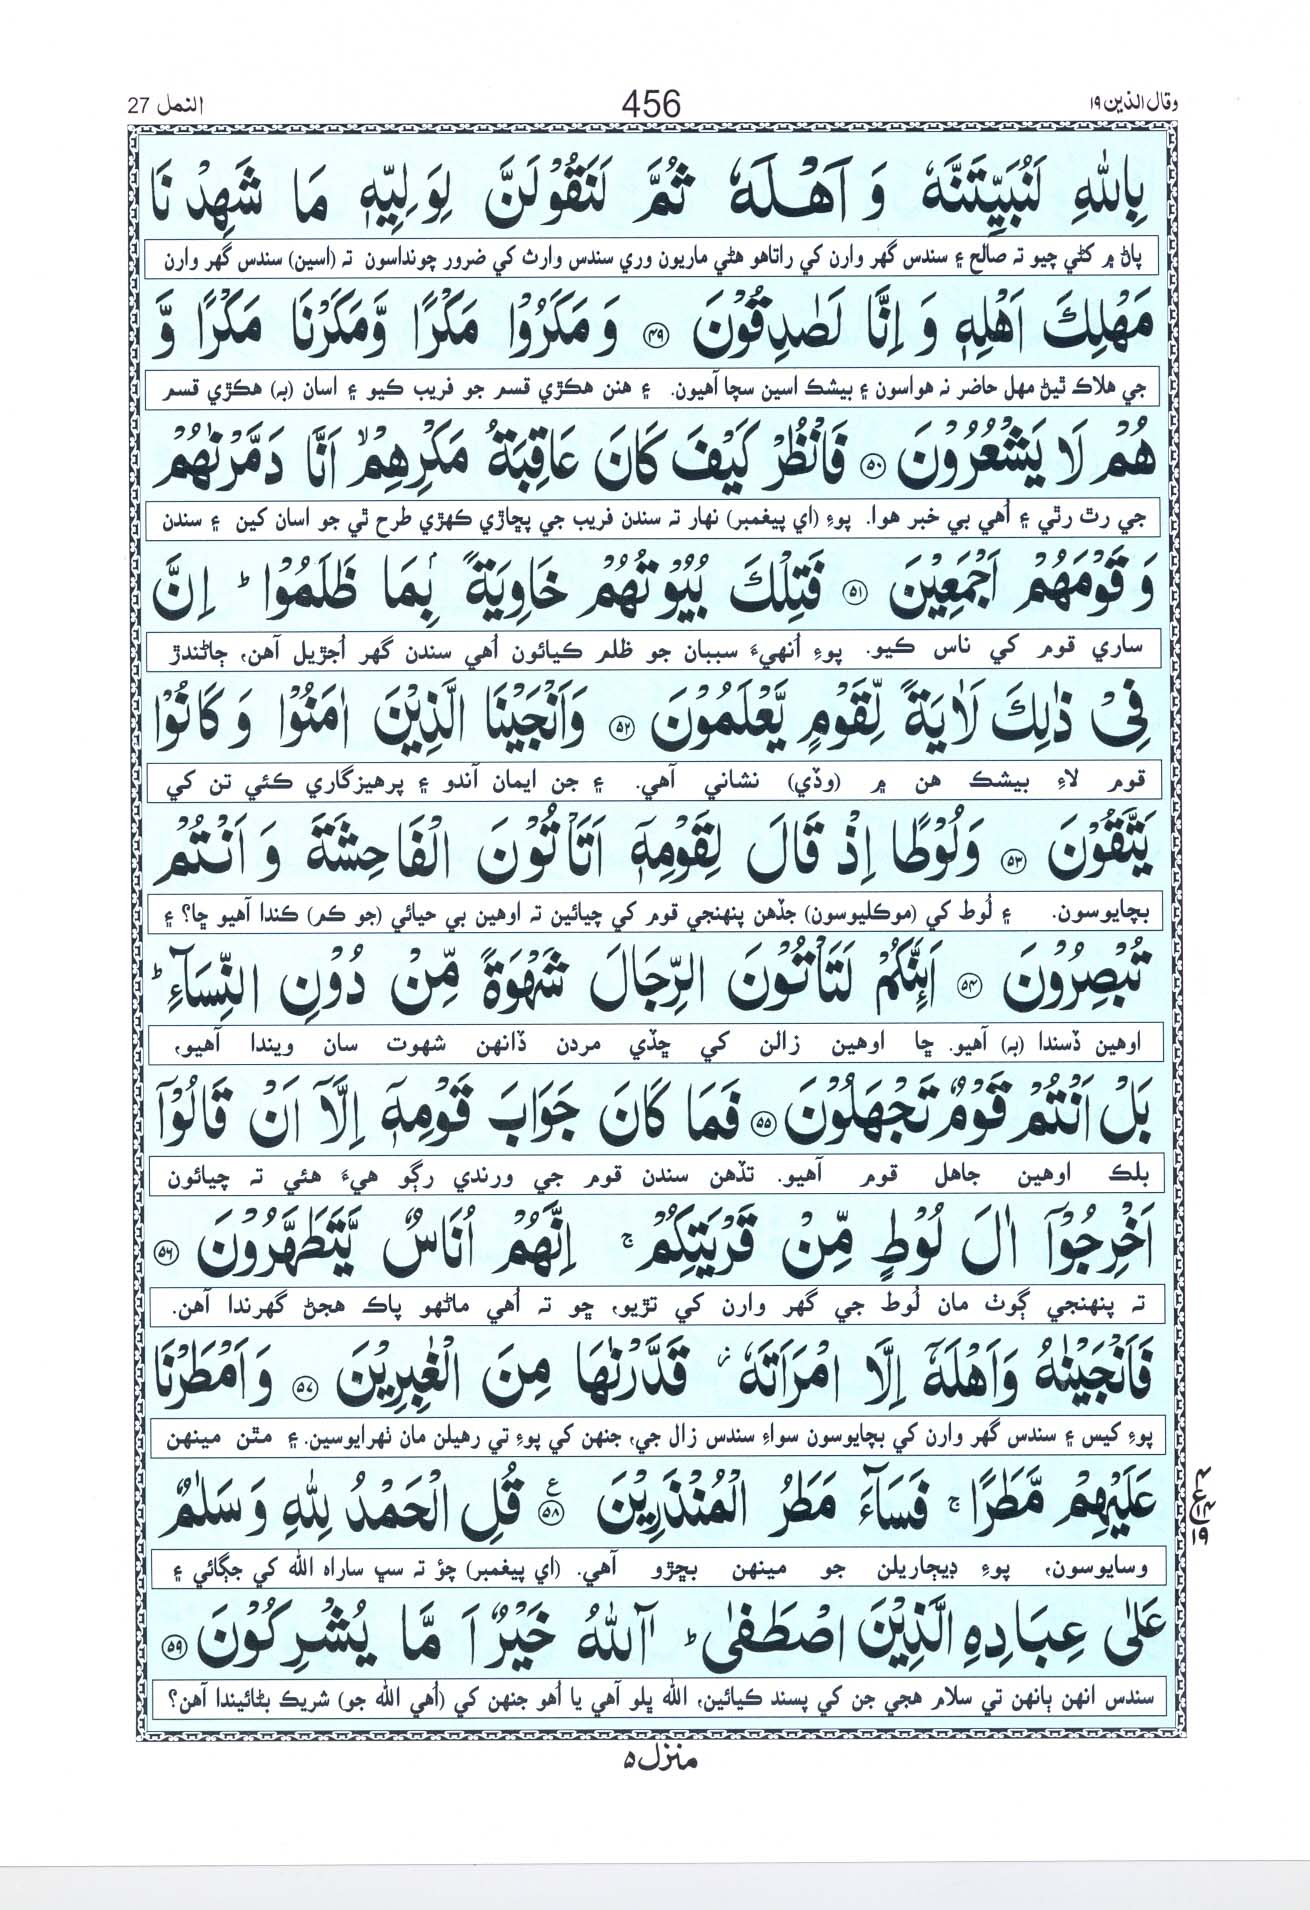 وقال الذين ١٩
456
النمل 27
بِاللّٰهِ لَنُبَيِّتَنَّهٗ وَ اَهْلَهٗ ثُمَّ لَنَقُوْلَنَّ لِوَلِيِّهٖ مَا شَهِدْنَا
پاڻ ۾ کڻي چيو ته صالح ۽ سندس گھر وارن کي راتاھو ھڻي ماريون وري سندس وارث کي ضرور چونداسون ته (اسين) سندس گھر وارن
مَهْلِكَ اَهْلِهٖ وَ اِنَّا لَصٰدِقُوْنَ ﴿٤٩﴾ وَ مَكَرُوْا مَكْرًا وَّمَكَرْنَا مَكْرًا وَّ
جي ھلاڪ ٿيڻ مھل حاضر نه ھواسون ۽ بيشڪ اسين سچا آھيون. ۽ ھنن ھڪڙي قسم جو فريب ڪيو ۽ اسان (به) ھڪڙي قسم
هُمْ لَا يَشْعُرُوْنَ ﴿٥٠﴾ فَانْظُرْ كَيْفَ كَانَ عَاقِبَةُ مَكْرِهِمْ ۙ اَنَّا دَمَّرْنٰهُمْ
جي رٿ رٿي ۽ اُھي بي خبر ھوا. پوءِ (اي پيغمبر) نھار ته سندن فريب جي پڇاڙي ڪھڙي طرح ٿي جو اسان کين ۽ سندن
وَ قَوْمَهُمْ اَجْمَعِيْنَ ﴿٥١﴾ فَتِلْكَ بُيُوْتُهُمْ خَاوِيَةًۢ بِمَا ظَلَمُوْا ؕ اِنَّ
ساري قوم کي ناس ڪيو. پوءِ اُنھيءَ سببان جو ظلم ڪيائون اُھي سندن گھر اُجڙيل آھن، ڄاڻندڙ
فِيْ ذٰلِكَ لَاٰيَةً لِّقَوْمٍ يَّعْلَمُوْنَ ﴿٥٢﴾ وَاَنْجَيْنَا الَّذِيْنَ اٰمَنُوْا وَ كَانُوْا
قوم لاءِ بيشڪ ھن ۾ (وڏي) نشاني آھي. ۽ جن ايمان آندو ۽ پرھيزگاري ڪئي تن کي
يَتَّقُوْنَ ﴿٥٣﴾ وَلُوْطًا اِذْ قَالَ لِقَوْمِهٖۤ اَتَاْتُوْنَ الْفَاحِشَةَ وَ اَنْتُمْ
بچايوسون. ۽ لُوط کي (موڪليوسون) جڏھن پنھنجي قوم کي چيائين ته اوھين بي حيائي (جو ڪم) ڪندا آھيو ڇا؟ ۽
تُبْصِرُوْنَ ﴿٥٤﴾ اَئِنَّكُمْ لَتَاْتُوْنَ الرِّجَالَ شَهْوَةً مِّنْ دُوْنِ النِّسَآءِ ؕ
اوھين ڏسندا (به) آھيو. ڇا اوھين زالن کي ڇڏي مردن ڏانھن شھوت سان ويندا آھيو،
بَلْ اَنْتُمْ قَوْمٌ تَجْهَلُوْنَ ﴿٥٥﴾ فَمَا كَانَ جَوَابَ قَوْمِهٖۤ اِلَّاۤ اَنْ قَالُوْۤا
بلڪ اوھين جاھل قوم آھيو. تڏھن سندن قوم جي ورندي رڳو ھيءَ ھئي ته چيائون
اَخْرِجُوْۤا اٰلَ لُوْطٍ مِّنْ قَرْيَتِكُمْ ۚ اِنَّهُمْ اُنَاسٌ يَّتَطَهَّرُوْنَ ﴿٥٦﴾
ته پنھنجي ڳوٺ مان لُوط جي گھر وارن کي تڙيو، ڇو ته اُھي ماڻھو پاڪ ھجڻ گھرندا آھن.
فَاَنْجَيْنٰهُ وَاَهْلَهٗۤ اِلَّا امْرَاَتَهٗ ؗ قَدَّرْنٰهَا مِنَ الْغٰبِرِيْنَ ﴿٥٧﴾ وَ اَمْطَرْنَا
پوءِ کيس ۽ سندس گھر وارن کي بچايوسون سواءِ سندس زال جي، جنھن کي پوءِ تي رھيلن مان ٺھرايوسين. ۽ مٿن مينھن
عَلَيْهِمْ مَّطَرًا ۚ فَسَآءَ مَطَرُ الْمُنْذَرِيْنَ ﴿٥٨﴾ ع قُلِ الْحَمْدُ لِلّٰهِ وَ سَلٰمٌ
وسايوسون، پوءِ ڊيڄاريلن جو مينھن بڇڙو آھي. (اي پيغمبر) چؤ ته سڀ ساراھ الله کي جڳائي ۽
عَلٰى عِبَادِهِ الَّذِيْنَ اصْطَفٰى ؕ آٰللّٰهُ خَيْرٌ اَمَّا يُشْرِكُوْنَ ﴿٥٩﴾
سندس انھن ٻانھن تي سلام ھجي جن کي پسند ڪيائين، الله ڀلو آھي يا اُھو جنھن کي (اُھي الله جو) شريڪ بڻائيندا آھن؟
منزل ٥